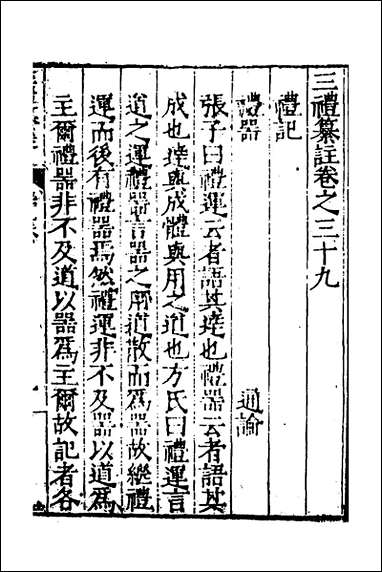 三禮纂註卷之三十九
禮記
禮器 通論
張子曰禮運云者語其達也禮器云者語其
成也達與成體與用之道也方氏曰禮運言
道之運禮器言器之用道散而爲器故繼禮
運而後有禮器焉然禮運非不及器以道爲
主爾禮器非不及道以器爲主爾故記者各